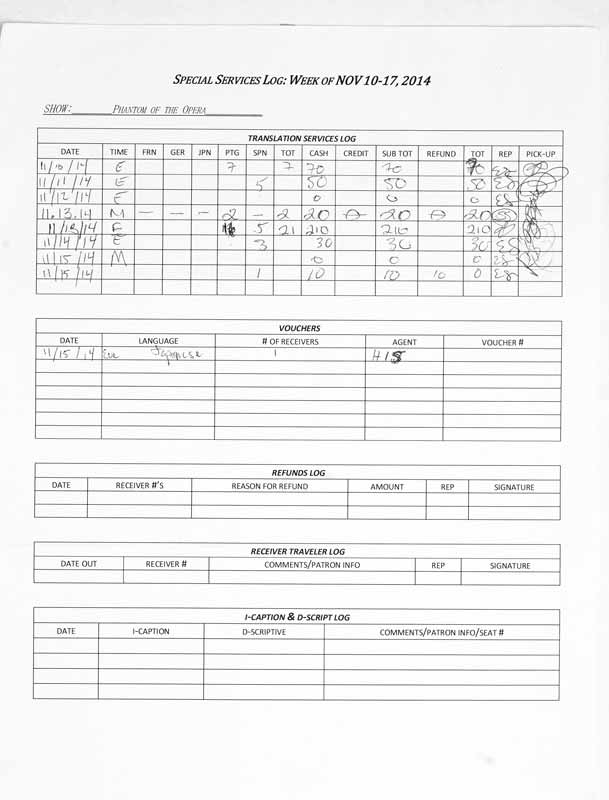 SPECIAL SERVICES LOG: WEEK OF NOV 10-17, 2014
SHOW: PHANTOM OF THE OPERA
TRANSLATION SERVICES LOG
DATE TIME FRN GER JPN PTG SPN TOT CASH CREDIT SUB TOT REFUND TOT REP PICK-UP
11/10/14 E 7 7 70 70 70 ES
11/11/14 E 5 50 50 50 ES
11/12/14 E 0 0 0 ES
11.13.14 M — — — 2 — 2 20 0 20 0 20
11/13/14 E 16 5 21 210 210 210
11/14/14 E 3 30 30 30 ES
11/15/14 M 0 0 0 ES
11/15/14 1 10 10 10 0 ES
VOUCHERS
DATE LANGUAGE # OF RECEIVERS AGENT VOUCHER #
11/15/14 Eve Japanese 1 HIS
REFUNDS LOG
DATE RECEIVER #'S REASON FOR REFUND AMOUNT REP SIGNATURE
RECEIVER TRAVELER LOG
DATE OUT RECEIVER # COMMENTS/PATRON INFO REP SIGNATURE
I-CAPTION & D-SCRIPT LOG
DATE I-CAPTION D-SCRIPTIVE COMMENTS/PATRON INFO/SEAT #